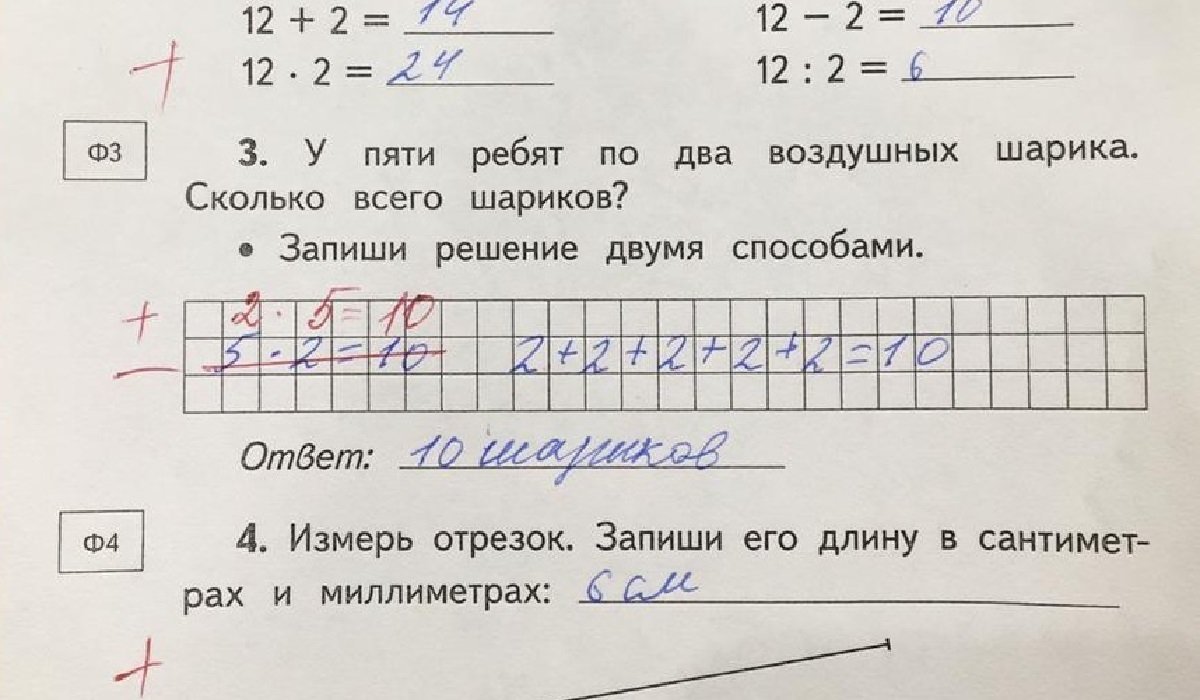 12 + 2 = 14 12 − 2 = 10
+ 12 · 2 = 24 12 : 2 = 6
Ф3 3. У пяти ребят по два воздушных шарика.
Сколько всего шариков?
• Запиши решение двумя способами.
+ 2 · 5 = 10
— 5 · 2 = 10 2+2+2+2+2=10
Ответ: 10 шариков
Ф4 4. Измерь отрезок. Запиши его длину в сантимет-
рах и миллиметрах: 6 см
+